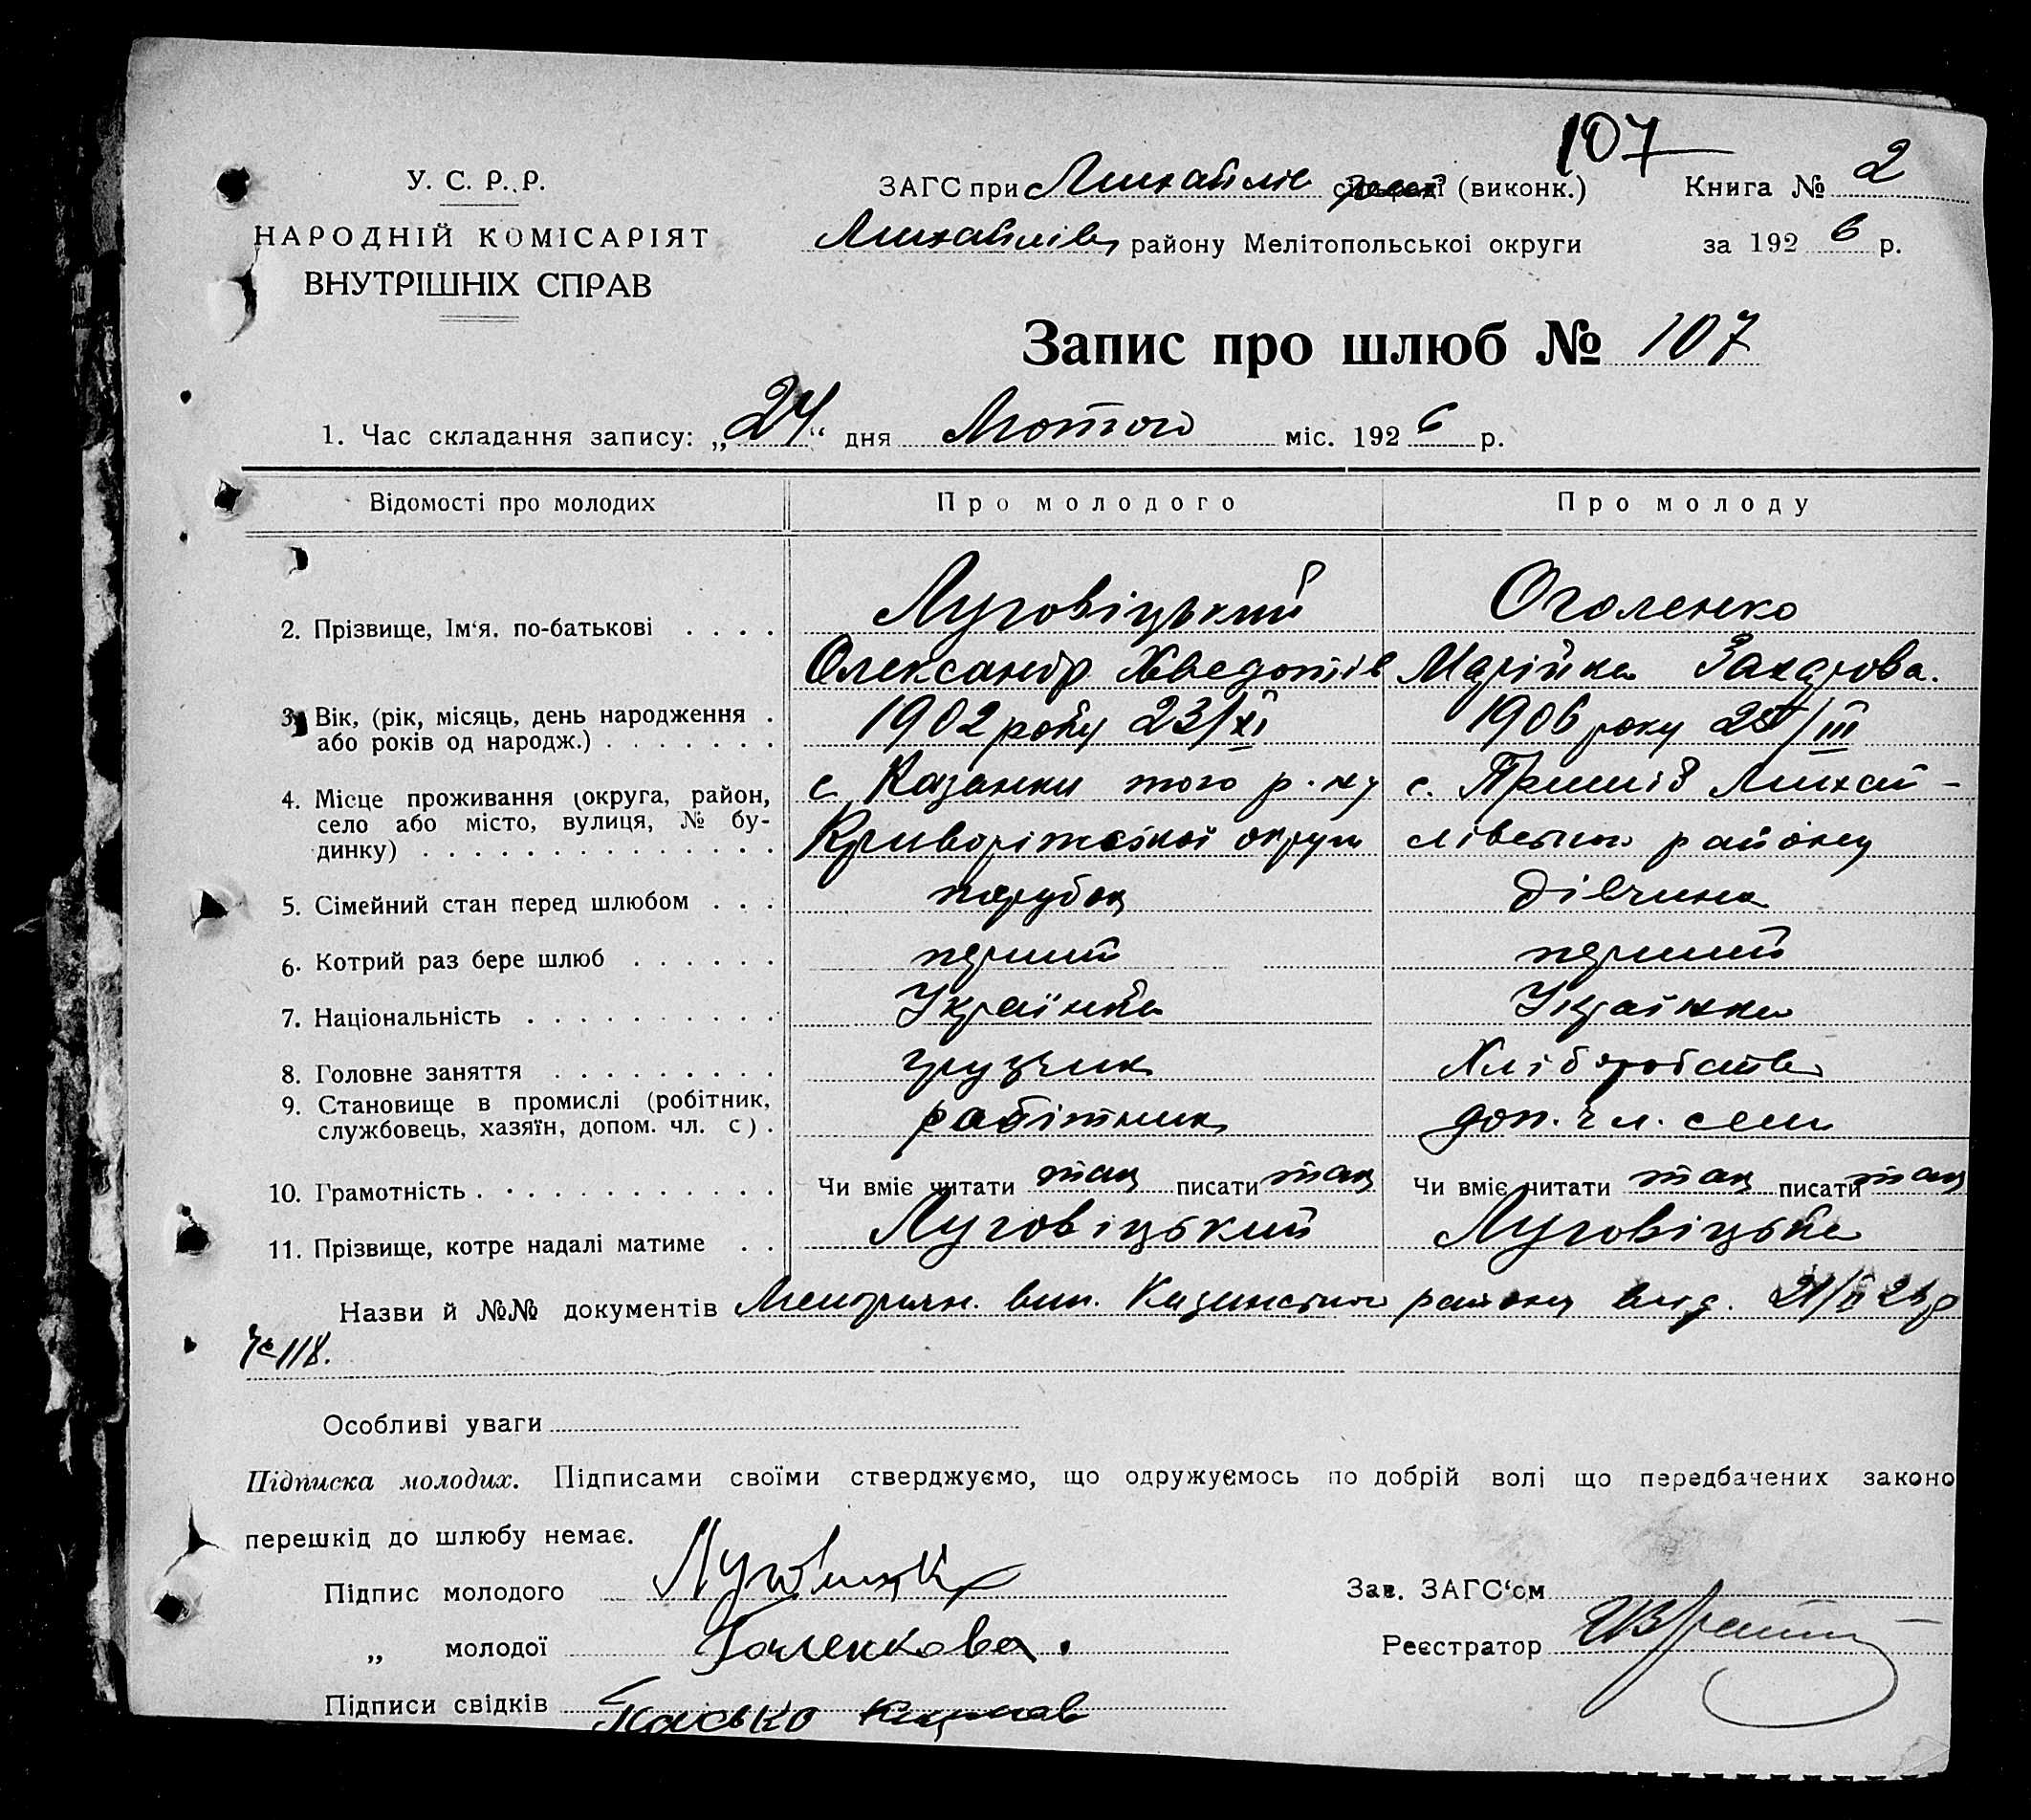 107
У. С. Р. Р.
ЗАГС при Михайлів (виконк.) Книга № 2
НАРОДНІЙ КОМІСАРІЯТ
Михайлів району Мелітопольської округи за 1926 р.
ВНУТРІШНІХ СПРАВ
Запис про шлюб № 107
1. Час складання запису: „24“ дня Лютого міс. 1926 р.
Відомості про молодих Про молодого Про молоду
2. Прізвище, Ім‘я, по-батькові . . . . Луговіцький Оголенко
Олександр Хведотів Марійка Захарова.
3. Вік, (рік, місяць, день народження . 1902 року 23/XI 1906 року /III
або років од народж.) . . . . . . .
4. Місце проживання (округа, район, с. Казанки того р-ну с. Михай-
село або місто, вулиця, № бу- Криворіжської округи лівського району
динку) . . . . . . . . . . . . . .
5. Сімейний стан перед шлюбом . . . парубок дівчина
6. Котрий раз бере шлюб . . . . . . перший перший
7. Національність . . . . . . . . . . Українка
8. Головне заняття . . . . . . . . . грузчик Хліборобство
9. Становище в промислі (робітник, робітник доп. чл. сем
службовець, хазяїн, допом. чл. с) .
10. Грамотність . . . . . . . . . . . . Чи вміє читати так писати так Чи вміє читати так писати так
11. Прізвище, котре надалі матиме . . Луговіцький Луговіцька
Назви й №№ документів вик. району вид.
№ 118.
Особливі уваги
Підписка молодих. Підписами своїми стверджуємо, що одружуємось по добрій волі що передбачених законо
перешкід до шлюбу немає.
Підпис молодого Зав. ЗАГС‘ом
„ молодої Голенкова. Реєстратор
Підписи свідків